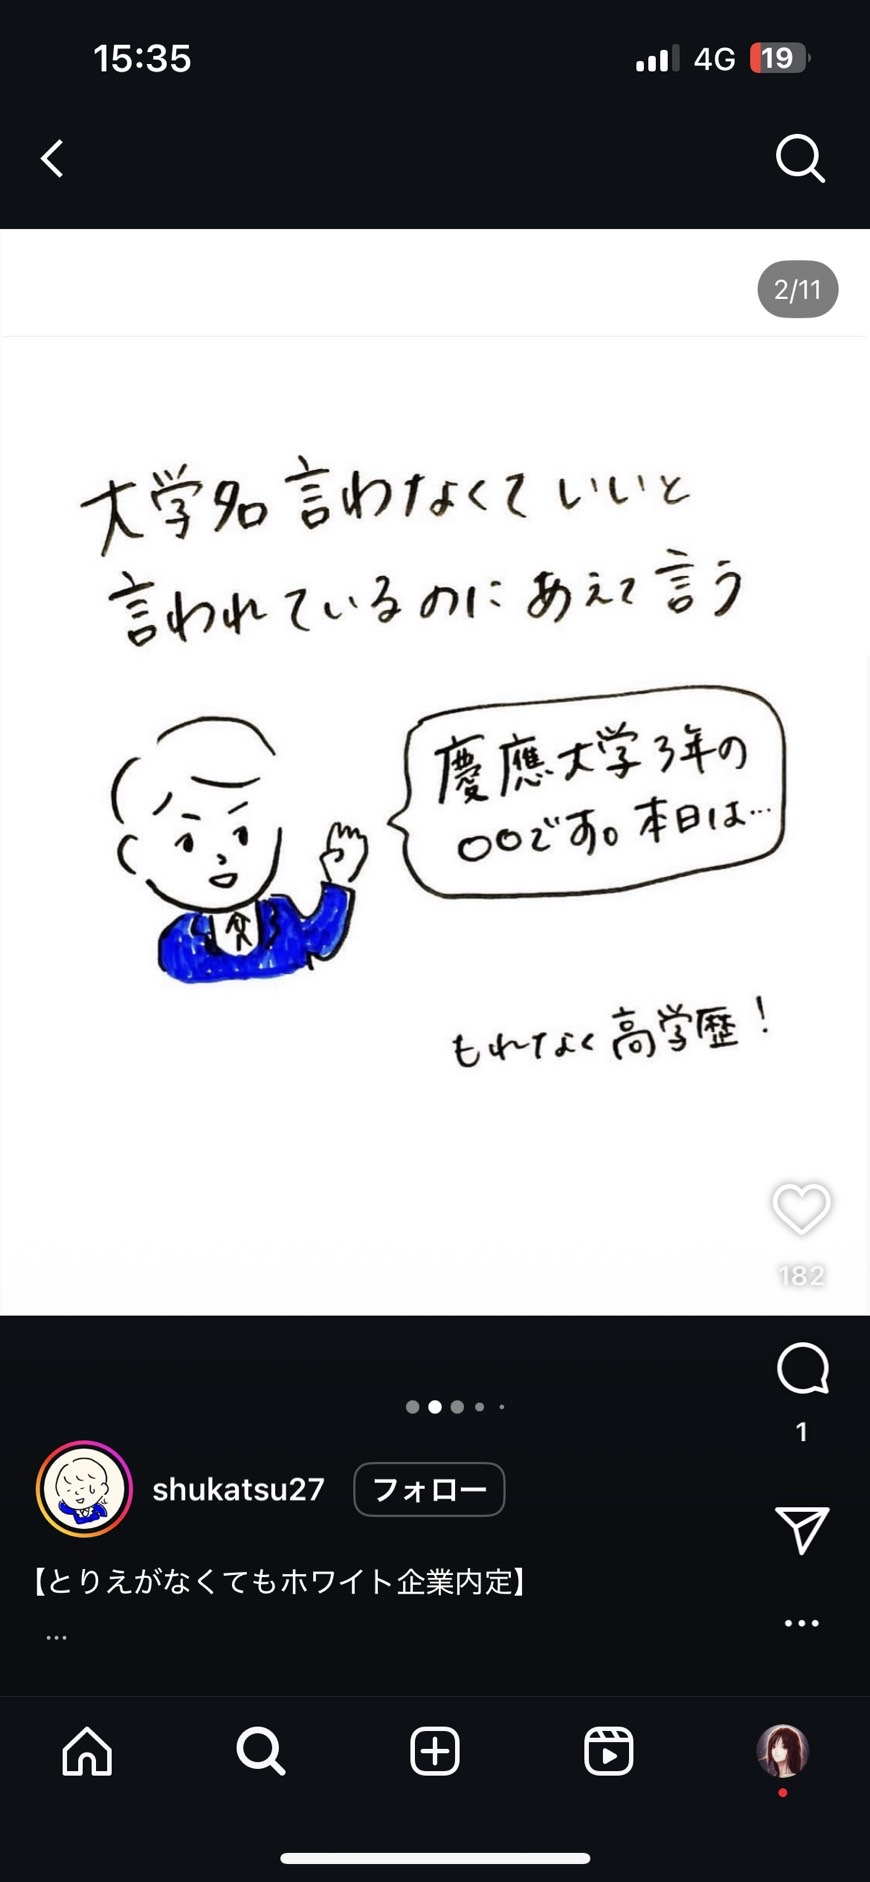 15:35
4G 19
2/11
大学名言わなくていいと
言われているのにあえて言う
慶應大学3年の
〇〇です。本日は…
もれなく高学歴!
182
1
shukatsu27 フォロー
【とりえがなくてもホワイト企業内定】
...